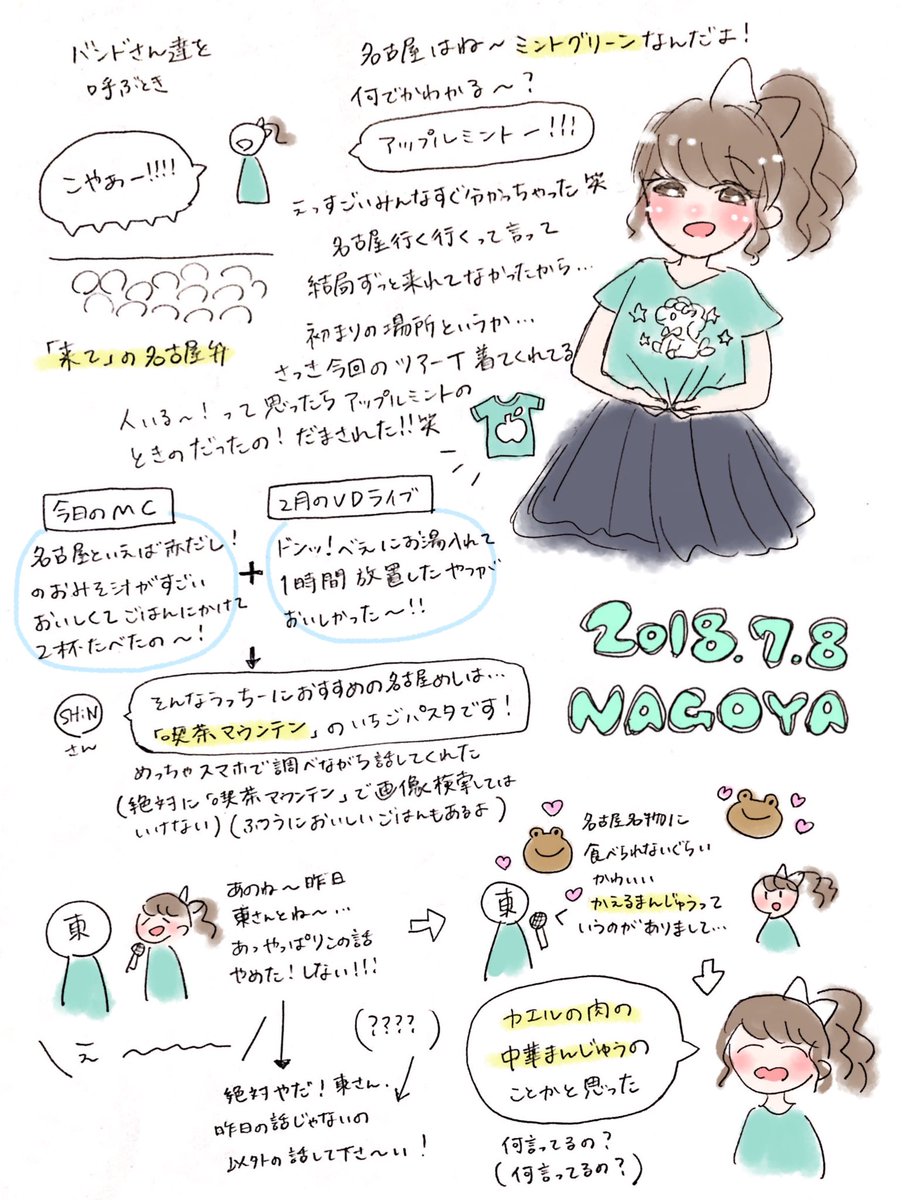 バンドさん達を
呼ぶとき
こやぁー!!!!
「来て」の名古屋弁
名古屋はね〜ミントグリーンなんだよ!
何でかわかる〜?
アップルミントー!!!
えっすごいみんなすぐ分かっちゃった笑
名古屋行く行くって言って
結局ずっと来れてなかったから…
初まりの場所というか…
さっき今回のツアーT着てくれてる
人いる〜!って思ったらアップルミントの
ときのだったの!だまされた!!笑
今日のMC
名古屋といえば赤だし!
のおみそ汁がすごい
おいしくてごはんにかけて
2杯たべたの〜!
+
2月のVDライブ
ドンッ!べえにお湯入れて
1時間放置したやつが
おいしかった〜!!
2018.7.8
NAGOYA
SHiN
さん
そんなうっちーにおすすめの名古屋めしは…
「喫茶マウンテン」のいちごパスタです!
めっちゃスマホで調べながら話してくれた
(絶対に「喫茶マウンテン」で画像検索しては
いけない)(ふつうにおいしいごはんもあるよ)
東
あのね〜昨日
東さんとね〜…
あっやっぱりこの話
やめた!しない!!!
\え〜〜〜/
(????)
絶対やだ!東さん、
昨日の話じゃないの
以外の話して下さ〜い!
東
名古屋名物に
食べられないぐらい
かわいい
かえるまんじゅうって
いうのがありまして…
カエルの肉の
中華まんじゅうの
ことかと思った
何言ってるの?
(何言ってるの?)